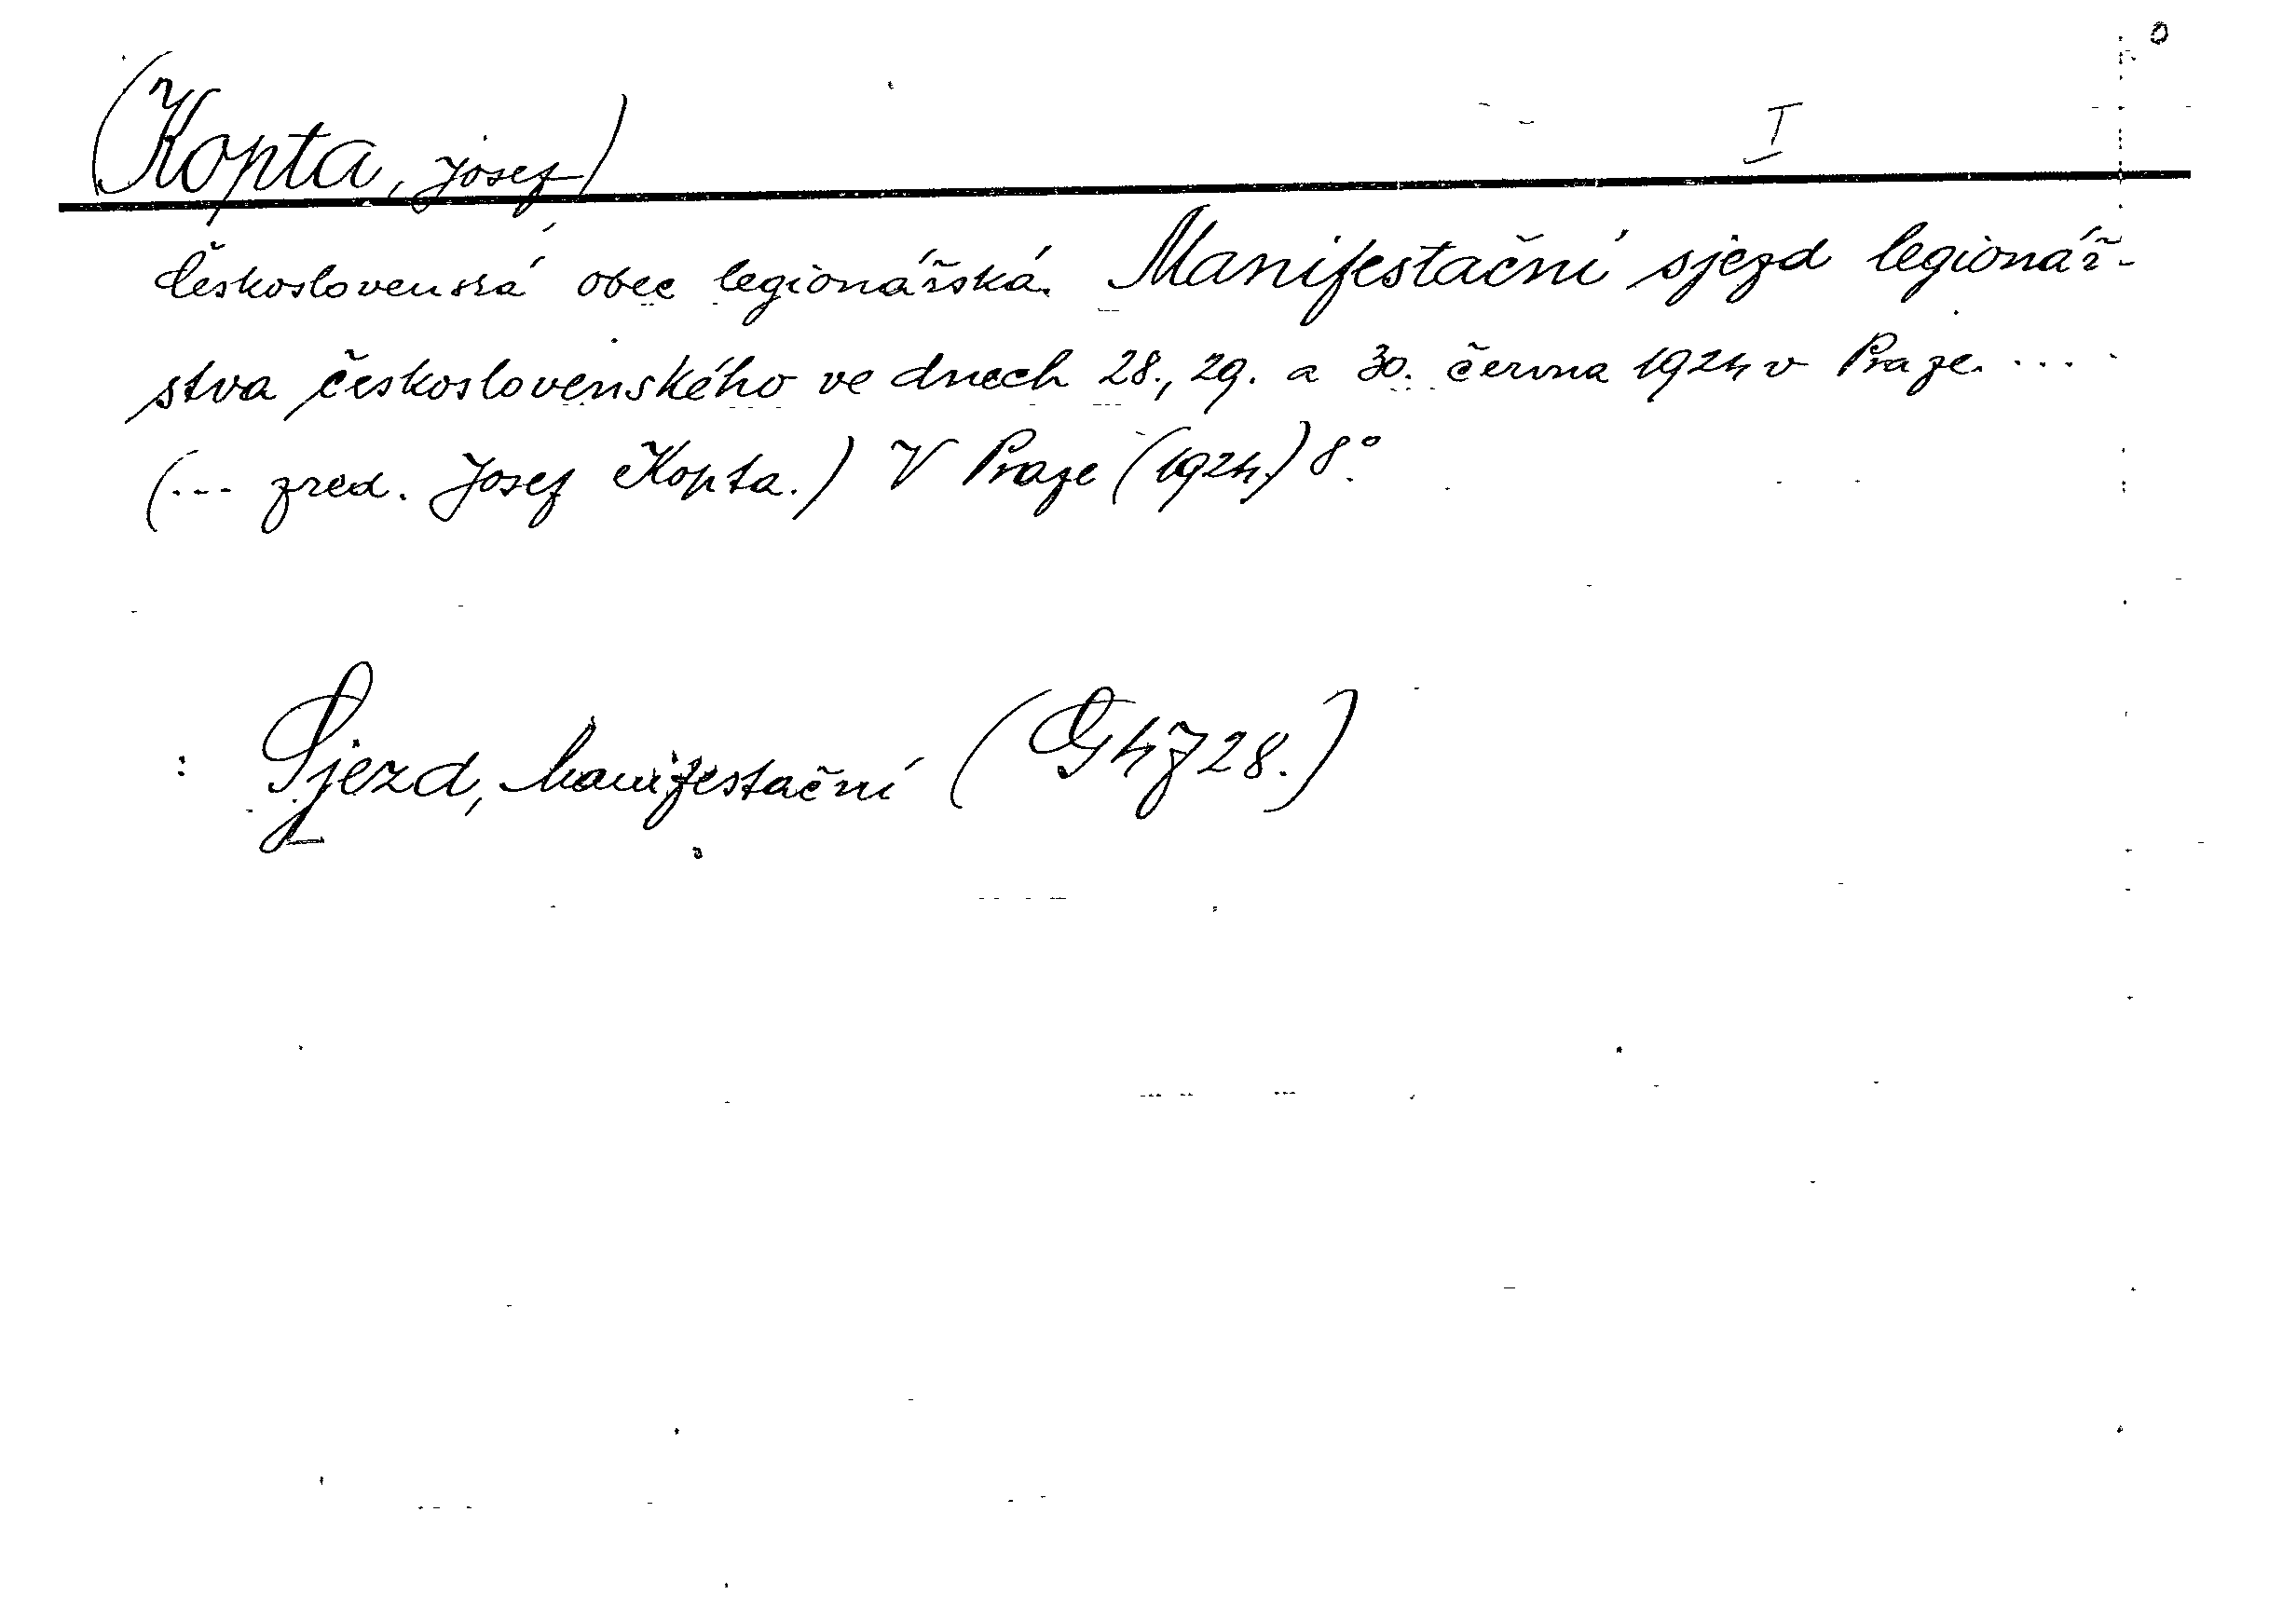 (Kopta, Josef) I
Československá obec legionářská. Manifestační sjezd legionář-
stva československého ve dnech 28., 29. a 30. června 1924 v Praze. ...
(... zred. Josef Kopta.) V Praze (1924.) 8°.
: Sjezd, Manifestační (G 4728.)